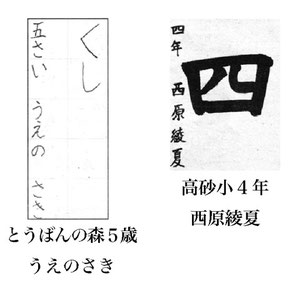 くし
五さい うえの さき
とうばんの森5歳
うえのさき
四
四年 西原綾夏
高砂小4年
西原綾夏